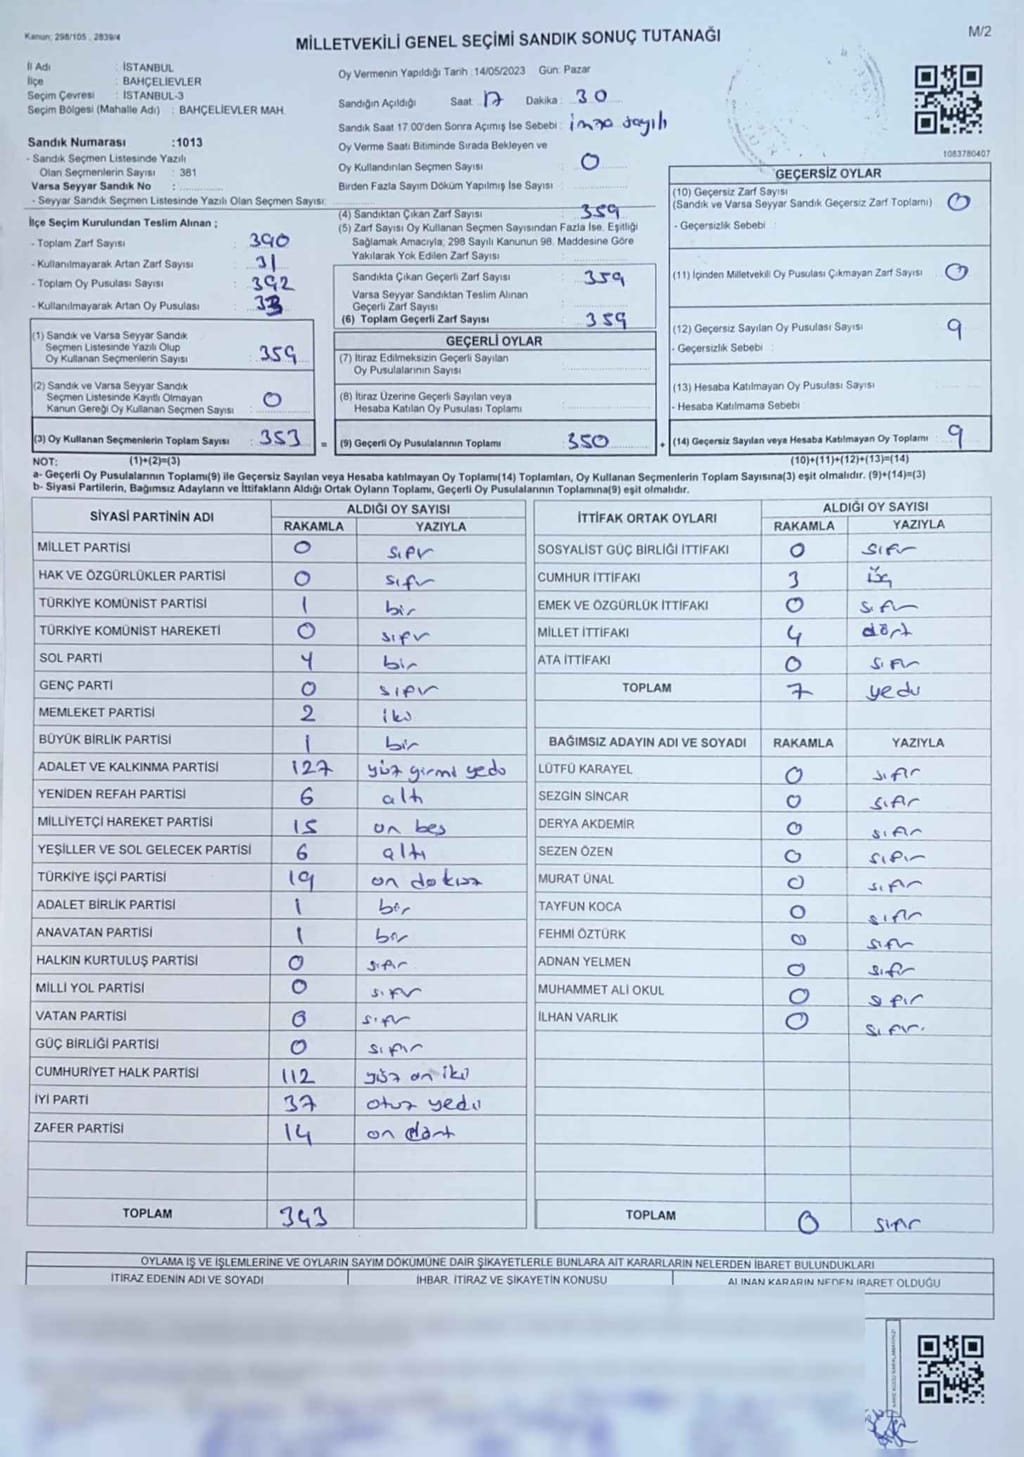 Kanun: 298/105 , 2839/4
M/2
MİLLETVEKİLİ GENEL SEÇİMİ SANDIK SONUÇ TUTANAĞI
İl Adı : İSTANBUL
İlçe : BAHÇELİEVLER
Seçim Çevresi : İSTANBUL-3
Seçim Bölgesi (Mahalle Adı) : BAHÇELİEVLER MAH.
Sandık Numarası :1013
- Sandık Seçmen Listesinde Yazılı
Olan Seçmenlerin Sayısı : 381
Varsa Seyyar Sandık No :
- Seyyar Sandık Seçmen Listesinde Yazılı Olan Seçmen Sayısı:
İlçe Seçim Kurulundan Teslim Alınan ;
- Toplam Zarf Sayısı : 390
- Kullanılmayarak Artan Zarf Sayısı : 31
- Toplam Oy Pusulası Sayısı : 392
- Kullanılmayarak Artan Oy Pusulası : 33
(1) Sandık ve Varsa Seyyar Sandık
Seçmen Listesinde Yazılı Olup
Oy Kullanan Seçmenlerin Sayısı : 359
(2) Sandık ve Varsa Seyyar Sandık
Seçmen Listesinde Kayıtlı Olmayan
Kanun Gereği Oy Kullanan Seçmen Sayısı : 0
(3) Oy Kullanan Seçmenlerin Toplam Sayısı : 353
Oy Vermenin Yapıldığı Tarih :14/05/2023 Gün: Pazar
Sandığın Açıldığı Saat: 17 Dakika: 30
Sandık Saat 17:00'den Sonra Açımış İse Sebebi : imza sayılı
Oy Verme Saati Bitiminde Sırada Bekleyen ve
Oy Kullandırılan Seçmen Sayısı : 0
Birden Fazla Sayım Döküm Yapılmış İse Sayısı :
(4) Sandıktan Çıkan Zarf Sayısı : 359
(5) Zarf Sayısı Oy Kullanan Seçmen Sayısından Fazla İse, Eşitliği
Sağlamak Amacıyla, 298 Sayılı Kanunun 98. Maddesine Göre
Yakılarak Yok Edilen Zarf Sayısı :
Sandıkta Çıkan Geçerli Zarf Sayısı : 359
Varsa Seyyar Sandıktan Teslim Alınan
Geçerli Zarf Sayısı :
(6) Toplam Geçerli Zarf Sayısı : 359
GEÇERLİ OYLAR
(7) İtiraz Edilmeksizin Geçerli Sayılan
Oy Pusulalarının Sayısı :
(8) İtiraz Üzerine Geçerli Sayılan veya
Hesaba Katılan Oy Pusulası Toplamı :
= (9) Geçerli Oy Pusulalarının Toplamı : 350
1083780407
GEÇERSİZ OYLAR
(10) Geçersiz Zarf Sayısı
(Sandık ve Varsa Seyyar Sandık Geçersiz Zarf Toplamı) : 0
- Geçersizlik Sebebi :
(11) İçinden Milletvekili Oy Pusulası Çıkmayan Zarf Sayısı : 0
(12) Geçersiz Sayılan Oy Pusulası Sayısı : 9
- Geçersizlik Sebebi :
(13) Hesaba Katılmayan Oy Pusulası Sayısı :
- Hesaba Katılmama Sebebi :
+ (14) Geçersiz Sayılan veya Hesaba Katılmayan Oy Toplamı : 9
NOT: (1)+(2)=(3) (10)+(11)+(12)+(13)=(14)
a- Geçerli Oy Pusulalarının Toplamı(9) ile Geçersiz Sayılan veya Hesaba katılmayan Oy Toplamı(14) Toplamları, Oy Kullanan Seçmenlerin Toplam Sayısına(3) eşit olmalıdır. (9)+(14)=(3)
b- Siyasi Partilerin, Bağımsız Adayların ve İttifakların Aldığı Ortak Oyların Toplamı, Geçerli Oy Pusulalarının Toplamına(9) eşit olmalıdır.
SİYASİ PARTİNİN ADI ALDIĞI OY SAYISI
RAKAMLA YAZIYLA
MİLLET PARTİSİ 0 sıfır
HAK VE ÖZGÜRLÜKLER PARTİSİ 0 sıfır
TÜRKİYE KOMÜNİST PARTİSİ 1 bir
TÜRKİYE KOMÜNİST HAREKETİ 0 sıfır
SOL PARTİ 1 bir
GENÇ PARTİ 0 sıfır
MEMLEKET PARTİSİ 2 iki
BÜYÜK BİRLİK PARTİSİ 1 bir
ADALET VE KALKINMA PARTİSİ 127 yüz yirmi yedi
YENİDEN REFAH PARTİSİ 6 altı
MİLLİYETÇİ HAREKET PARTİSİ 15 on beş
YEŞİLLER VE SOL GELECEK PARTİSİ 6 altı
TÜRKİYE İŞÇİ PARTİSİ 19 on dokuz
ADALET BİRLİK PARTİSİ 1 bir
ANAVATAN PARTİSİ 1 bir
HALKIN KURTULUŞ PARTİSİ 0 sıfır
MİLLİ YOL PARTİSİ 0 sıfır
VATAN PARTİSİ 0 sıfır
GÜÇ BİRLİĞİ PARTİSİ 0 sıfır
CUMHURİYET HALK PARTİSİ 112 yüz on iki
İYİ PARTİ 37 otuz yedi
ZAFER PARTİSİ 14 on dört
TOPLAM 343
İTTİFAK ORTAK OYLARI ALDIĞI OY SAYISI
RAKAMLA YAZIYLA
SOSYALİST GÜÇ BİRLİĞİ İTTİFAKI 0 sıfır
CUMHUR İTTİFAKI 3 üç
EMEK VE ÖZGÜRLÜK İTTİFAKI 0 sıfır
MİLLET İTTİFAKI 4 dört
ATA İTTİFAKI 0 sıfır
TOPLAM 7 yedi
BAĞIMSIZ ADAYIN ADI VE SOYADI RAKAMLA YAZIYLA
LÜTFÜ KARAYEL 0 sıfır
SEZGİN SİNCAR 0 sıfır
DERYA AKDEMİR 0 sıfır
SEZEN ÖZEN 0 sıfır
MURAT ÜNAL 0 sıfır
TAYFUN KOCA 0 sıfır
FEHMİ ÖZTÜRK 0 sıfır
ADNAN YELMEN 0 sıfır
MUHAMMET ALİ OKUL 0 sıfır
İLHAN VARLIK 0 sıfır.
TOPLAM 0 sıfır
OYLAMA İŞ VE İŞLEMLERİNE VE OYLARIN SAYIM DÖKÜMÜNE DAİR ŞİKAYETLERLE BUNLARA AİT KARARLARIN NELERDEN İBARET BULUNDUKLARI
İTİRAZ EDENİN ADI VE SOYADI İHBAR, İTİRAZ VE ŞİKAYETİN KONUSU ALINAN KARARIN NEDEN İBARET OLDUĞU